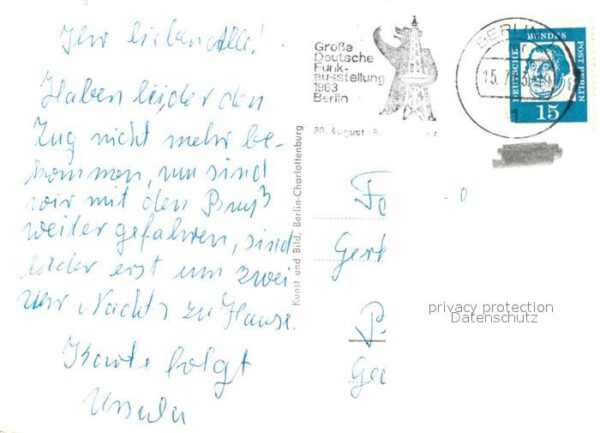 Ihr lieben Alle!
Haben leider den
Zug nicht mehr be-
kommen, nun sind
wir mit den Bus
weiter gefahren, sind
leider erst um zwei
Uhr Nachts zu Hause.
Karte folgt
Ursula
Kunst und Bild, Berlin-Charlottenburg
Große
Deutsche
Funk-
ausstellung
1963
Berlin
30. August - 8.
BERLIN
15.7.63
1
DEUTSCHE BUNDESPOST BERLIN
15
Fa
Gert
P
Ger
privacy protection
Datenschutz